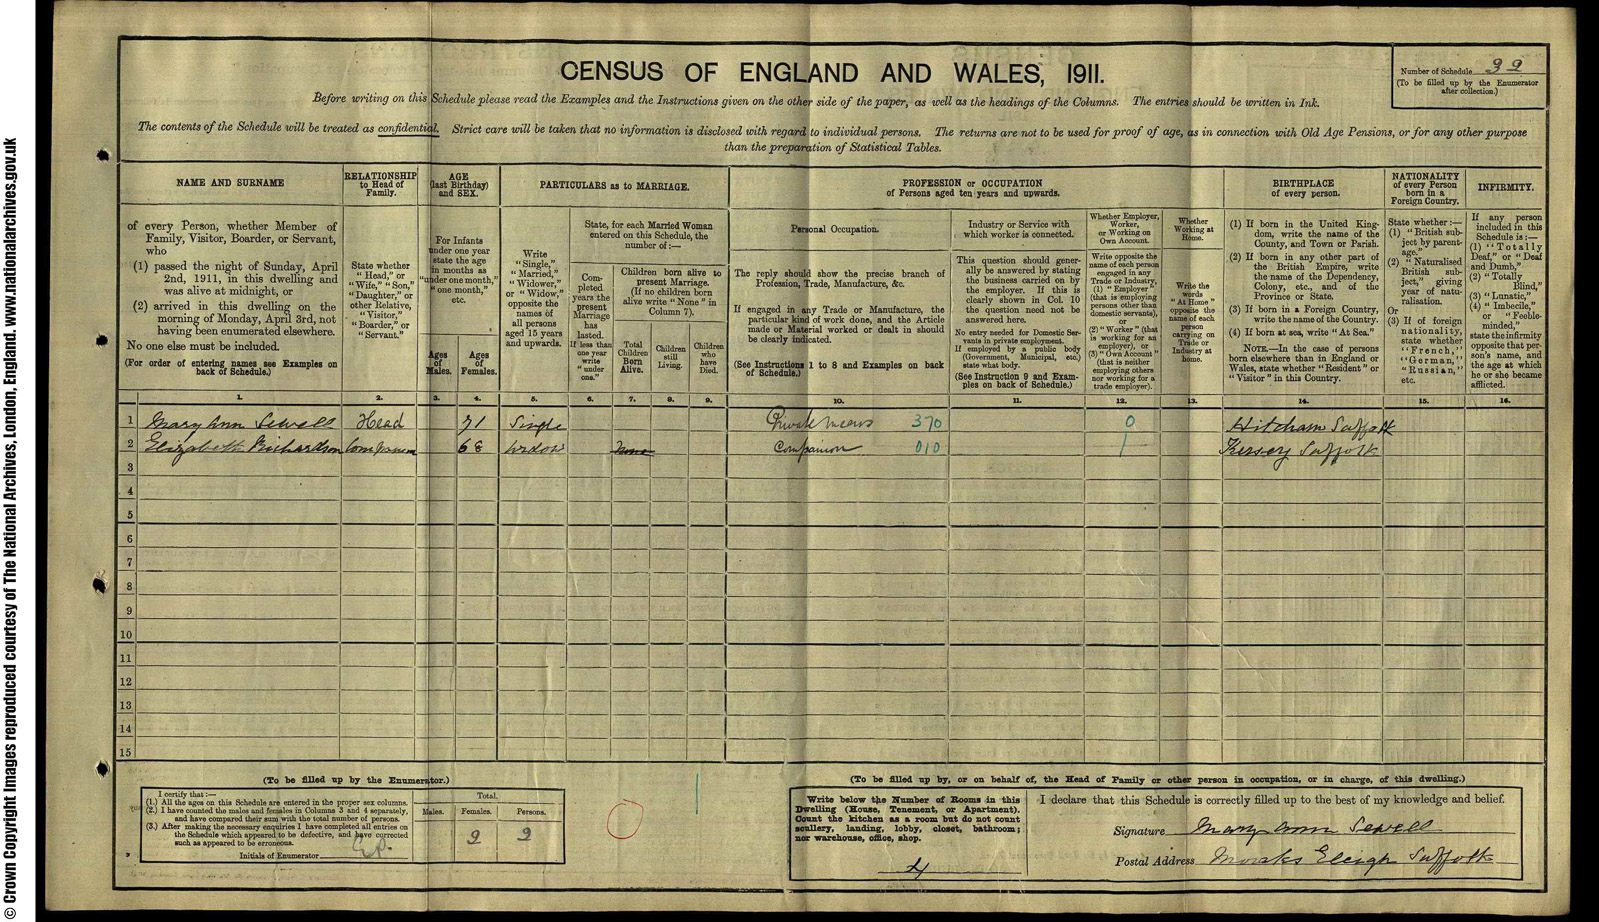 © Crown Copyright Images reproduced courtesy of The National Archives, London, England. www.nationalarchives.gov.uk
CENSUS OF ENGLAND AND WALES, 1911.
Number of Schedule 32
(To be filled up by the Enumerator
after collection.)
Before writing on this Schedule please read the Examples and the Instructions given on the other side of the paper, as well as the headings of the Columns. The entries should be written in Ink.
The contents of the Schedule will be treated as confidential. Strict care will be taken that no information is disclosed with regard to individual persons. The returns are not to be used for proof of age, as in connection with Old Age Pensions, or for any other purpose
than the preparation of Statistical Tables.
NAME AND SURNAME
of every Person, whether Member of
Family, Visitor, Boarder, or Servant,
who
(1) passed the night of Sunday, April
2nd, 1911, in this dwelling and
was alive at midnight, or
(2) arrived in this dwelling on the
morning of Monday, April 3rd, not
having been enumerated elsewhere.
No one else must be included.
(For order of entering names see Examples on
back of Schedule.)
RELATIONSHIP
to Head of
Family.
State whether
"Head," or
"Wife," "Son,"
"Daughter," or
other Relative,
"Visitor,"
"Boarder," or
"Servant."
AGE
(last Birthday)
and SEX.
For Infants
under one year
state the age
in months as
"under one month,"
"one month,"
etc.
Ages
of
Males.
Ages
of
Females.
PARTICULARS as to MARRIAGE.
Write
"Single,"
"Married,"
"Widower,"
or "Widow,"
opposite the
names of
all persons
aged 15 years
and upwards.
State, for each Married Woman
entered on this Schedule, the
number of:—
Completed
years the
present
Marriage
has
lasted.
If less than
one year
write
"under
one."
Children born alive to
present Marriage.
(If no children born
alive write "None" in
Column 7).
Total
Children
Born
Alive.
Children
still
Living.
Children
who
have
Died.
PROFESSION or OCCUPATION
of Persons aged ten years and upwards.
Personal Occupation.
The reply should show the precise branch of
Profession, Trade, Manufacture, &c.
If engaged in any Trade or Manufacture, the
particular kind of work done, and the Article
made or Material worked or dealt in should
be clearly indicated.
(See Instructions 1 to 8 and Examples on back
of Schedule.)
Industry or Service with
which worker is connected.
This question should gener-
ally be answered by stating
the business carried on by
the employer. If this is
clearly shown in Col. 10
the question need not be
answered here.
No entry needed for Domestic Ser-
vants in private employment.
If employed by a public body
(Government, Municipal, etc.)
state what body.
(See Instruction 9 and Exam-
ples on back of Schedule.)
Whether Employer,
Worker,
or Working on
Own Account.
Write opposite the
name of each person
engaged in any
Trade or Industry,
(1) "Employer"
(that is employing
persons other than
domestic servants),
or
(2) "Worker" (that
is working for an
employer), or
(3) "Own Account"
(that is neither
employing others
nor working for a
trade employer).
Whether
Working at
Home.
Write the
words
"At Home"
opposite the
name of each
person
carrying on
Trade or
Industry at
home.
BIRTHPLACE
of every person.
(1) If born in the United King-
dom, write the name of the
County, and Town or Parish.
(2) If born in any other part of
the British Empire, write
the name of the Dependency,
Colony, etc., and of the
Province or State.
(3) If born in a Foreign Country,
write the name of the Country.
(4) If born at sea, write "At Sea."
NOTE.—In the case of persons
born elsewhere than in England or
Wales, state whether "Resident" or
"Visitor" in this Country.
NATIONALITY
of every Person
born in a
Foreign Country.
State whether:—
(1) "British sub-
ject by parent-
age."
(2) "Naturalised
British sub-
ject," giving
year of natu-
ralisation.
Or
(3) If of foreign
nationality,
state whether
"French,"
"German,"
"Russian,"
etc.
INFIRMITY.
If any person
included in this
Schedule is:—
(1) "Totally
Deaf," or "Deaf
and Dumb,"
(2) "Totally
Blind,"
(3) "Lunatic,"
(4) "Imbecile,"
or "Feeble-
minded,"
state the infirmity
opposite that per-
son's name, and
the age at which
he or she became
afflicted.
1. 2. 3. 4. 5. 6. 7. 8. 9. 10. 11. 12. 13. 14. 15. 16.
1 Mary Ann Sewell Head 71 Single Private means 370 0 Hitcham Suffolk
2 Elizabeth Richardson Companion 68 Widow None Companion 010 1 Kersey Suffolk
3
4
5
6
7
8
9
10
11
12
13
14
15
(To be filled up by the Enumerator.)
I certify that:—
(1.) All the ages on this Schedule are entered in the proper sex columns.
(2.) I have counted the males and females in Columns 3 and 4 separately,
and have compared their sum with the total number of persons.
(3.) After making the necessary enquiries I have completed all entries on
the Schedule which appeared to be defective, and have corrected
such as appeared to be erroneous.
Initials of Enumerator
Total.
Males. Females. Persons.
2 2
(To be filled up by, or on behalf of, the Head of Family or other person in occupation, or in charge, of this dwelling.)
Write below the Number of Rooms in this
Dwelling (House, Tenement, or Apartment).
Count the kitchen as a room but do not count
scullery, landing, lobby, closet, bathroom;
nor warehouse, office, shop.
4
I declare that this Schedule is correctly filled up to the best of my knowledge and belief.
Signature Mary Ann Sewell
Postal Address Monks Eleigh Suffolk